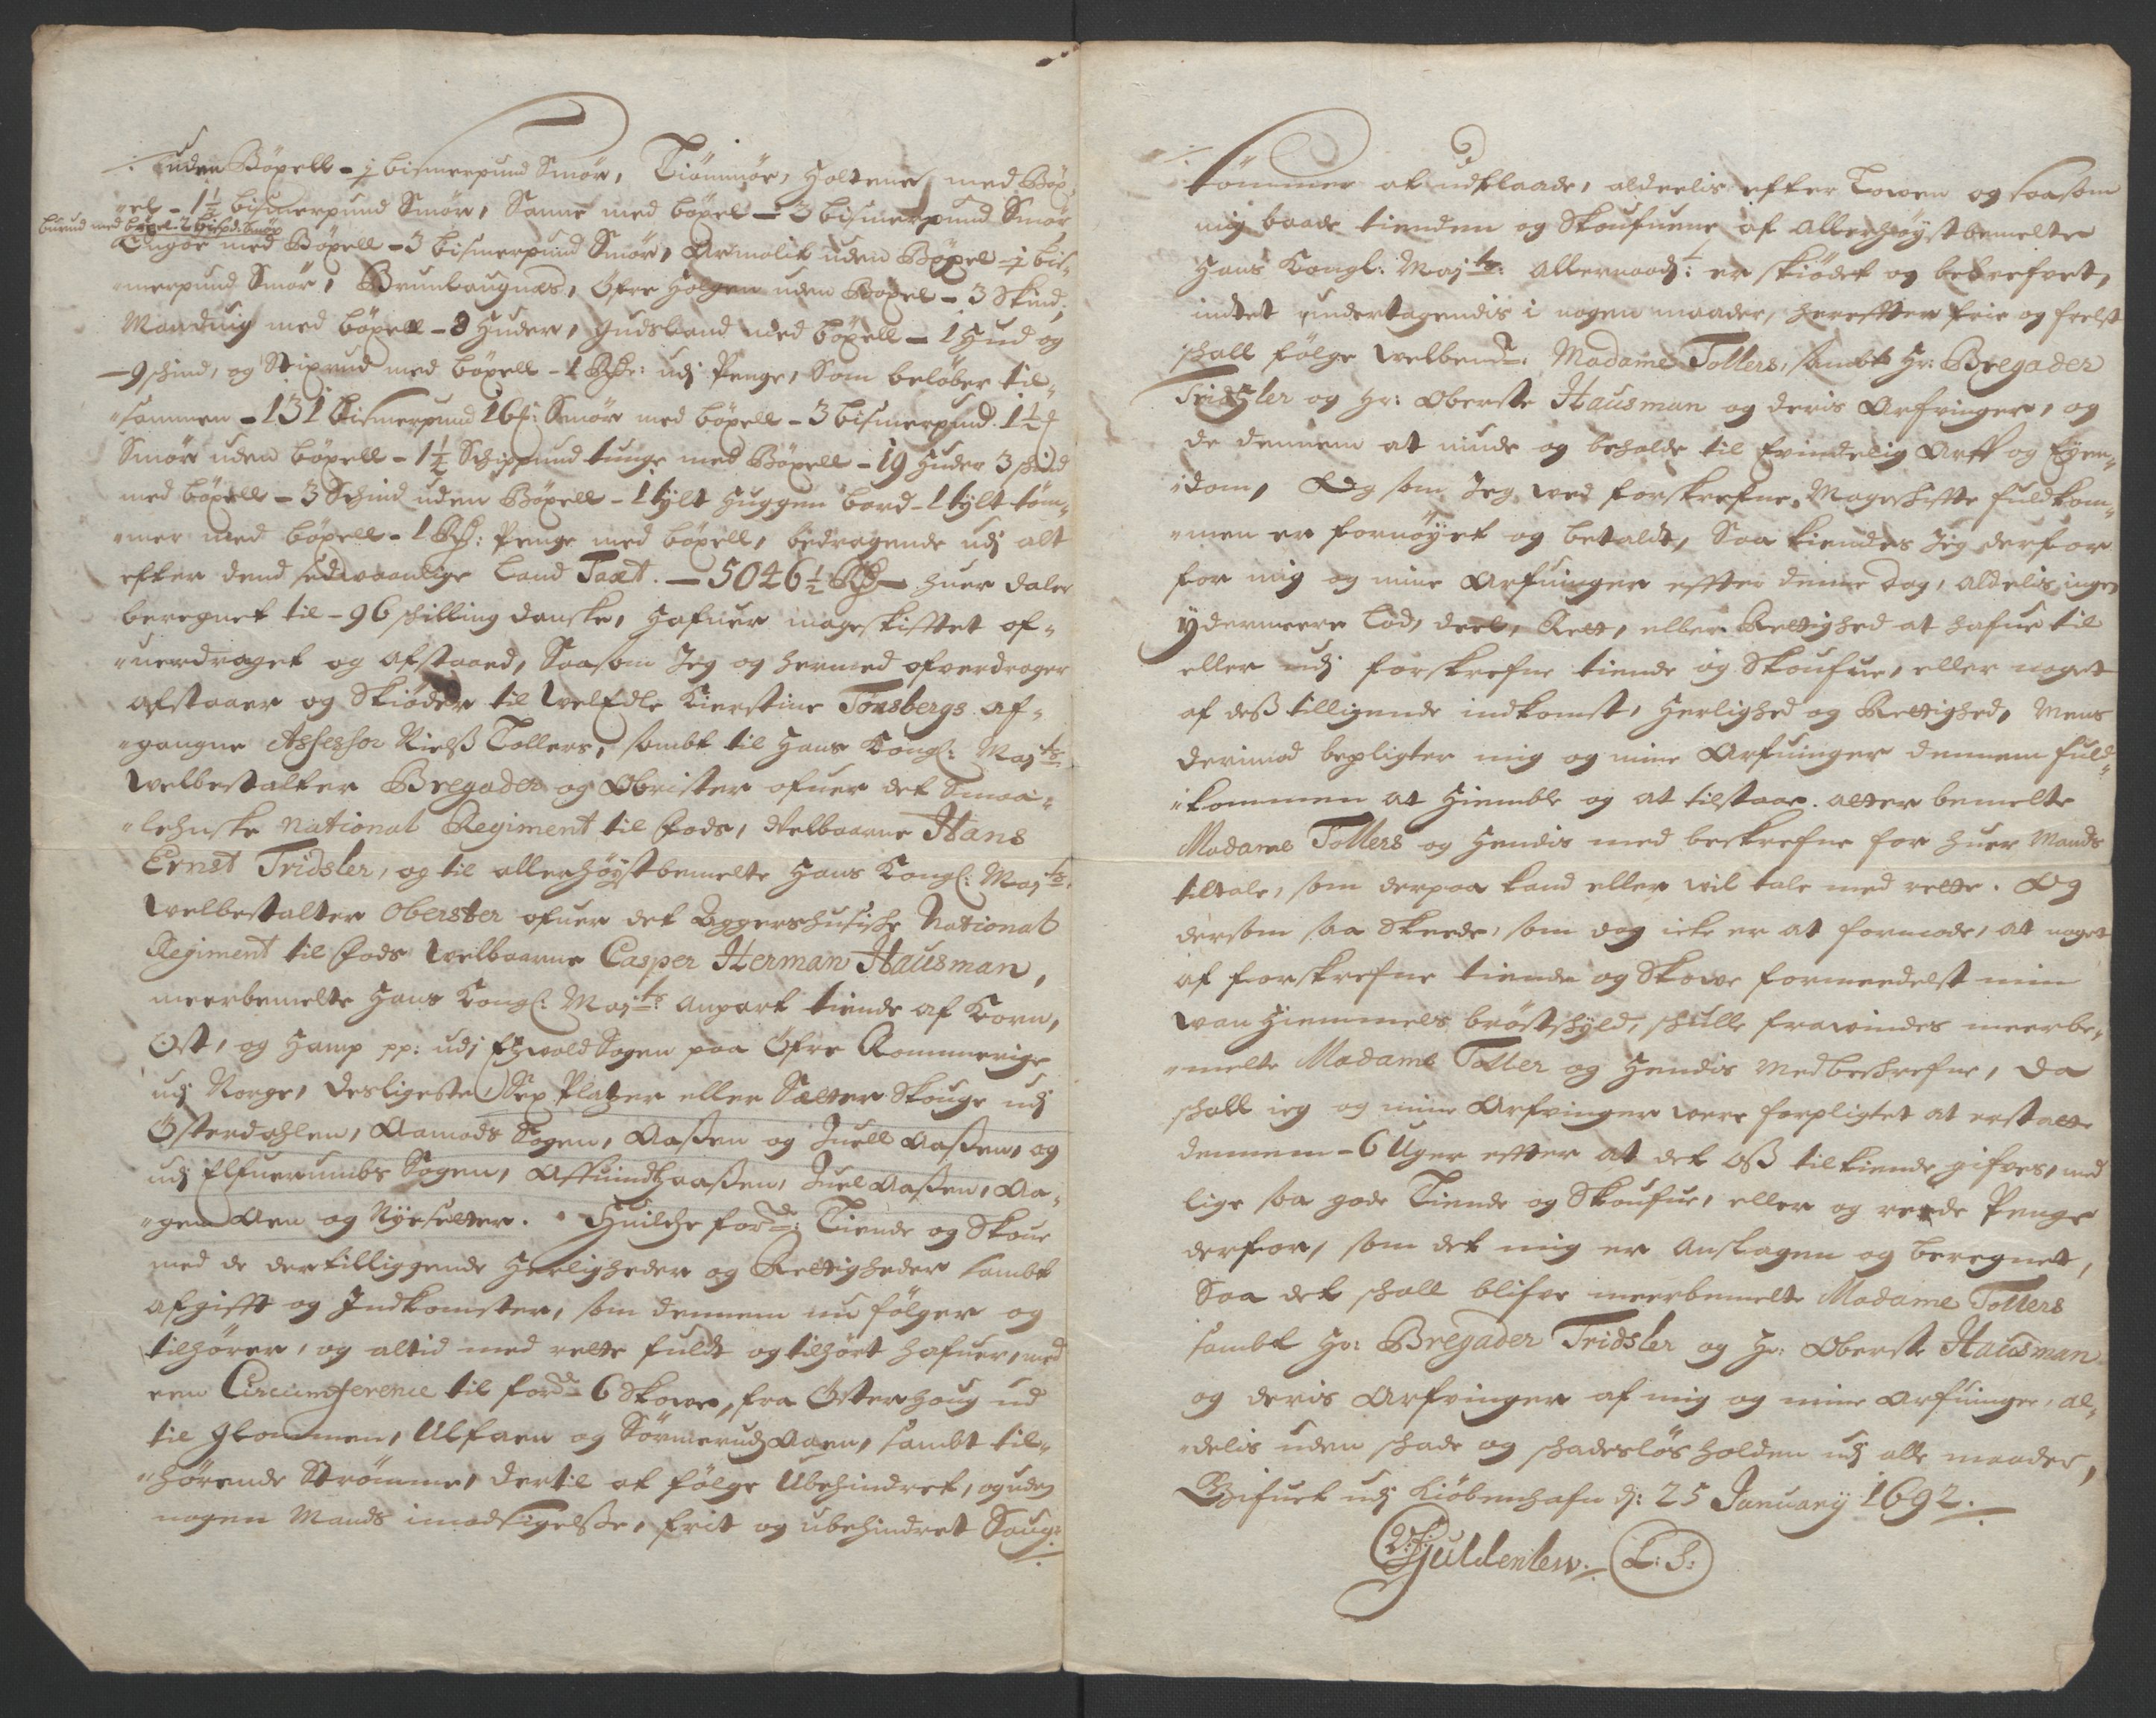 uden Böxell - j bismerpund Smör, Tiömmör, Holtene med Böx,,
,,el - 1½ bismerpund Smör, Sanne med böxel - 3 bismerpund Smör
burud med böxel. 2 bispd: Smör
Tingör med Böxell - 3 bismerpund Smör, Ormolit uden Böxel - j bis,,
,,merpund Smör, Brunlaugnæs, Öfre Holgen uden Boxel - 3 Skind,
Mandvig med böxell - 8 Huder, Gudsland med böxell - 1 Hud og
- 9 schind, og Stixrud med böxell - 1 Rdr: udj Penge, Som belöber til,,
,,sammen - 131 bismerpund 16 : Smör med böxell - 3 bismerpund. 1½
Smör uden böxell - 1½ Schippund tunge med Böxell - 19 Huder 3 schind
med böxell - 3 Schind uden Böxell - 1 tylt Huggen bord - 1 tylt töm,,
,,mer med böxell - 1 Rd: Penge med böxell, bedragende udj alt
efter dend sedvaanlige Land Taxt. - 5046½ Rd - huer daler
beregnet til - 96 schilling danske, Hafuer mageskifftet of,,
,,uerdraget og afstaaed, Saasom Jeg og hermed ofverdrager
afstaaer og Skiöder til WelEdle Kierstine Tønsbergs af,,
,,gangne Assessor Nielß Tollers, sambt til Hans Kongl: Mayts
Welbestalter Bregader og Obrister ofuer det Smaa,,
,,lehnske National Regiment til Fods, Welbaarne Hans
Ernst Tridsler, og til allerhöystbemelte Hans Kongl: Mayts,
Welbestalter Oberster ofuer det Aggershusische National
Regiment til Fods Welbaarne Casper Herman Hausman,
meerbemelte Hans Kongl: Mayts anpart tiende af Korn,
Ost, og Hamp pp: udj Eyvold Sogen paa Öfre Rommerige
udj Norge, desligeste Sex Platzer eller Sætter Skouge udj
Österdahlen, Aamods Sogen, Aaßen og Juell Aaßen, og
udj Elfuerumbs Sogen, Affuindhaaßen, Juel Aaßen, Aa,,
,,gen Aen og Nyesetter. Huilche ford: Tiende og Skoue
med de dertilliggende Herligheder og Rettigheder sambt
afgifft og Indkomster, som dennem nu fölger og
tilhörer, og altid med rette fuldt og tilhört hafuer, med
een Circumference til ford 6 Skowe, fra Österhoug ud
til Glommen, Ulfaen og Sörmerudz Aaen, sambt til,,
,,hörende Strömme, dertil at fölge Ubehindret, og uden
nogen Mands imodsigelße, frit og ubehindret Saug:
tömmer at udflaade, aldeelis efter Lowen og saasom
mig baade tienden og Skoufuene af Allerhöystbemelte
Hans Kongl: Mayts: Allernaadt: er skiödet og bebrefvet,
indtet undertagendis i nogen maader, hereffter frie og frelst
schall fölge Welbemt: Madame Tollers, sambt Hr: Bregader
Tridsler og Hr: Oberste Hausman og deris Arfvinger, og
de dennem at niude og beholde til Evindelig Arff og Eyen,,
,,dom, Og som Jeg wed forskrefne Mageschiffte fuldkom,,
,,men er fornöyet og betaldt, Saa kiendes Jeg derfor
for mig og mine Arfuinger effter denne dag, aldelis ingen
ydermeere Lod, deel, Rett, eller Rettighed at hafue til
eller udj forskrefne tiende og Skoufue, eller noget
af deß tilligende indkomst, Herlighed og Rettighed, Mens
derimod bepligter mig og mine Arfuinger dennem fuld,,
,,kommen at Hiemble og at tilstaae. alter bemelte
Madame Tollers og Hendis med beskrefne for huer Mands
tiltale, som derpaa kand eller wil tale med rette. Og
dersom saa Skeede, som dog icke er at formode, at noget
af forskrefne tiende og Skowe formeedelst min
Wan Hiemmels bröstschyld, schulle frawindes meerbe,,
,,melte Madame Toller og Hendis Medbeschrefne, da
schall ieg og mine Arfvinger were forpligtet at erstatte
dennem - 6 Uger effter at det Oß tilkiende gifves, med
lige saa gode Tiende og Skoufue, eller og reede Penge
derfor, som det mig er Anslagen og beregnet,
Saa det schall blifve meerbemelte Madame Tollers
sambt Hr: Bregader Tridsler og Hr: Oberste Hausman
og deris Arfvinger af mig og mine Arfuinger, al,,
,,delis uden schade og schadeslös holden udj alle maader,
Gifuet udj Kiöbenhafn dj: 25 January 1692.
U: F: Guldenlew. L: S: